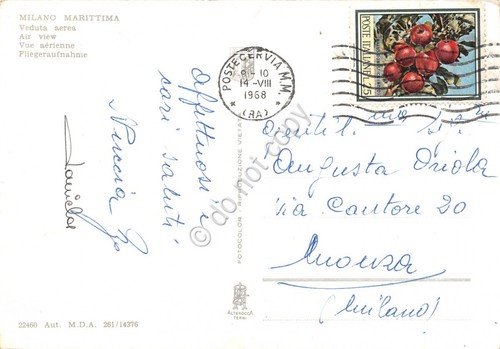 MILANO MARITTIMA
Veduta aerea
Air view
Vue aérienne
Fliegeraufnahme
Affettuosi e
cari saluti
POSTE CERVIA M.M.
9-10
14-VIII
1968
(RA)
POSTE ITALIANE
L.25
Gentil. Sig.
Augusta Oriola
via Cantore 20
Monza
(Milano)
FOTOCOLOR RIPRODUZIONE VIETATA
ALTEROCCA
TERNI
22460 Aut. M.D.A. 261/14376
do not copy